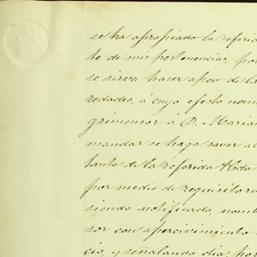 se ha apropiado la referid
te de mis pertenencias, por
se sirva hacer apeo de la
redades, á cuyo efecto nom
grimensor á D. Marian
mandar se haga saver al
tante de la referida Hda
por medio de requisitori
siendo notificado, nomb
sor con apercivimiento
cio, y señalando dia por